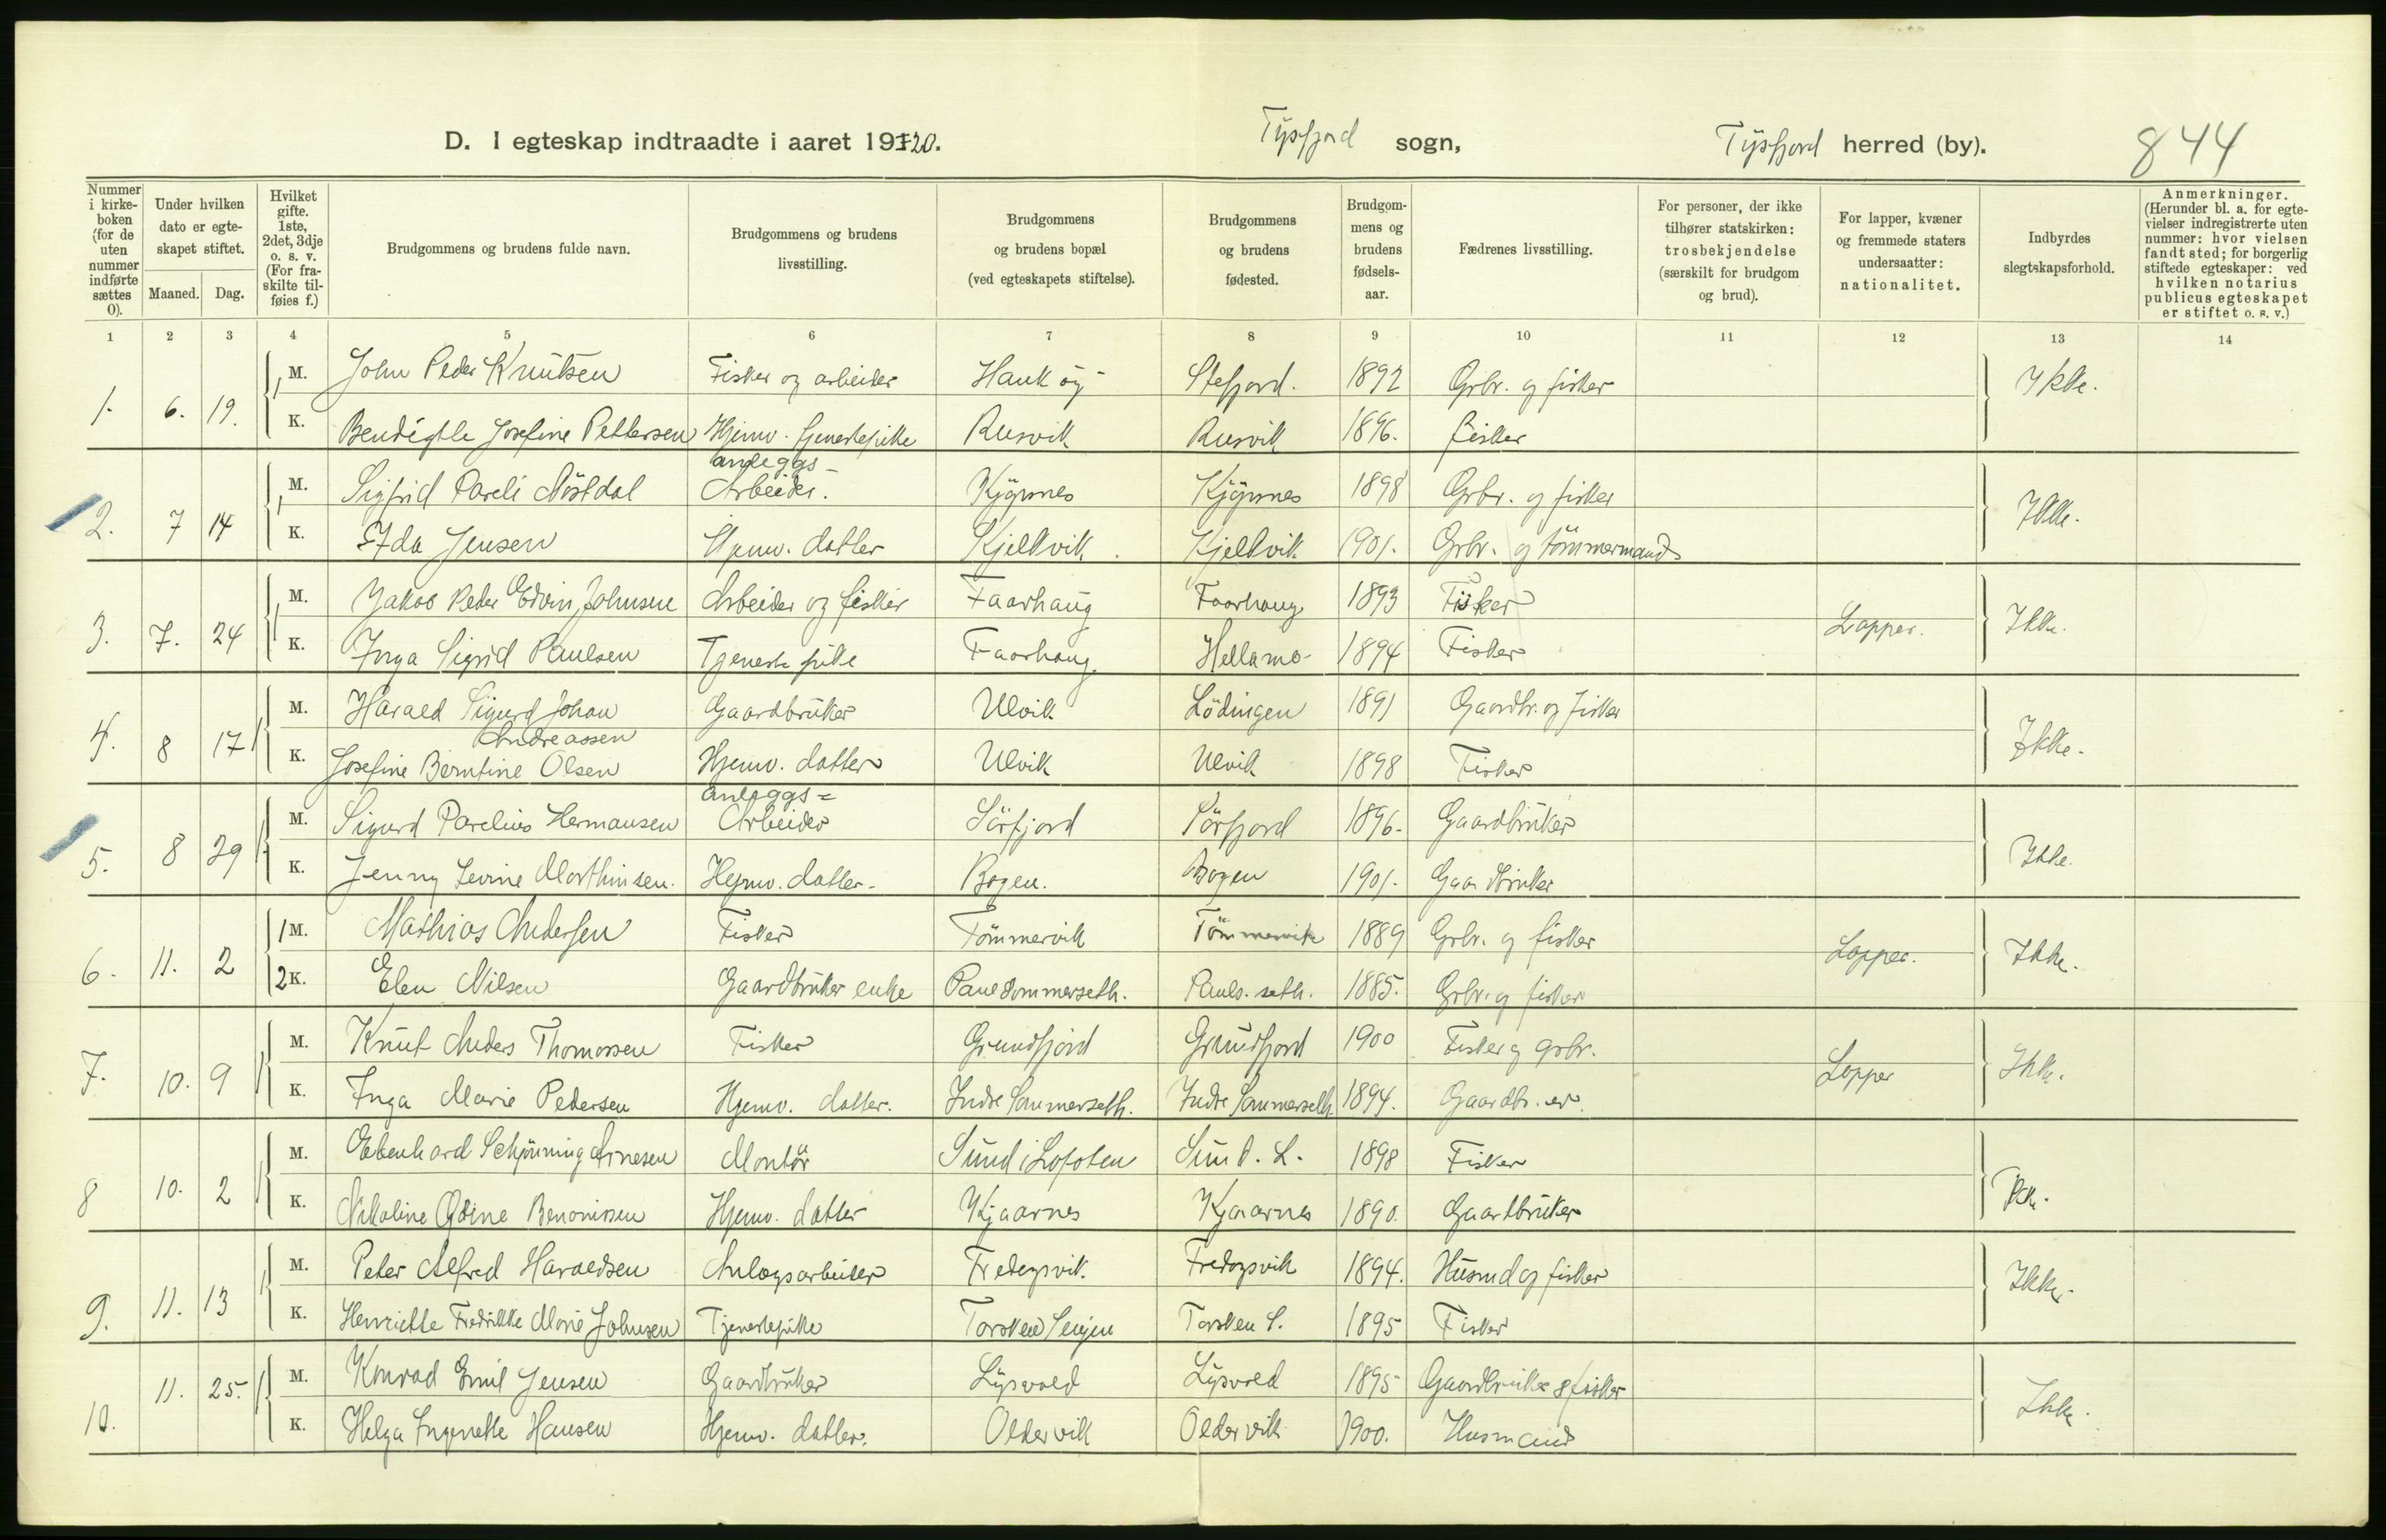 D. I egteskap indtraadte i aaret 1920. Tysfjord sogn, Tysfjord herred (by). 844
Nummer i kirke-boken (for de uten nummer indførte sættes 0). Under hvilken dato er egte-skapet stiftet. Maaned. Dag. Hvilket gifte. 1ste, 2det, 3dje o. s. v. (For fra-skilte til-føies f.) Brudgommens og brudens fulde navn. Brudgommens og brudens livsstilling. Brudgommens og brudens bopæl (ved egteskapets stiftelse). Brudgommens og brudens fødested. Brudgom-mens og brudens fødsels-aar. Fædrenes livsstilling. For personer, der ikke tilhører statskirken: trosbekjendelse (særskilt for brudgom og brud). For lapper, kvæner og fremmede staters undersaatter: nationalitet. Indbyrdes slegtskapsforhold. Anmerkninger. (Herunder bl. a. for egte-vielser indregistrerte uten nummer: hvor vielsen fandt sted; for borgerlig stiftede egteskaper: ved hvilken notarius publicus egteskapet er stiftet o. s. v.)
1 2 3 4 5 6 7 8 9 10 11 12 13 14
1. 6. 19. 1 M. John Peder Knutsen Fisker og arbeider Haukøy Stefjord. 1892 Grbr. og fisker Ikke.
K. Bendigtte Josefine Pettersen Hjemv. tjenestepike Rusvik Rusvik 1896. fisker
anleggs-
2. 7 14 1 M. Sigfrid Pareli Nöstdal Arbeider. Kjöpsnes Kjöpsnes 1898 Grbr. og fisker Ikke.
K. Ida Jensen Hjemv. datter Kjelkvik. Kjelkvik 1901. Grbr. og tömmermand
3. 7. 24 1 M. Jakob Peder Edvin Johnsen Arbeider og fisker Faarhaug Faarhaug 1893 Fisker Lapper. Ikke.
K. Inga Sigrid Paulsen Tjenestepike Faarhaug Hellamo 1894 Fisker
4. 8 17 1 M. Harald Sigurd Johan Gaardbruker Ulvik Lödingen 1891 Gaardbr. og fisker Ikke.
Andreassen
K. Josefine Berntine Olsen Hjemv. datter Ulvik Ulvik 1898 Fisker
anleggs=
5. 8 29 1 M. Sigurd Parelius Hermansen Arbeider Sörfjord Sörfjord 1896. Gaardbruker Ikke.
K. Jenny Levine Marthinsen. Hjemv. datter. Bogen. Bogen 1901. Gaardbruker
6. 11. 2 1 M. Mathias Andersen Fisker Tömmervik Tömmervik 1889 Grbr. og fisker Lapper. Ikke.
2 K. Elen Nilsen Gaardbruker enke Paulsommerseth. Pauls. seth. 1885. Grbr. og fisker
7. 10. 9 1 M. Knut Anders Thomassen Fisker Grundfjord Grundfjord 1900 Fisker og grbr. Lapper Ikke.
K. Inga Marie Pedersen Hjemv. datter. Indre Sommerseth. Indre Sommerseth. 1894. Gaardbr.er.
8 10. 2 1 M. Ebenhard Schjønning Arnesen Montör Sund i Lofoten Sund. L. 1898 Fisker Ikke.
K. Nikoline Odine Benonisen Hjemv. datter Kjaarnes Kjaarnes 1890. Gaardbruker
9. 11. 13 1 M. Peter Alfred Haraldsen Anlægsarbeider Fredagsvik. Fredagsvik 1894. Husmd og fisker Ikke.
K. Henriette Fredrikke Marie Johnsen Tjenestepike Torsken Senjen Torsken S. 1895 Fisker
10. 11. 25. 1 M. Konrad Emil Jensen Gaardbruker Lysvold Lysvold 1895 Gaardbruker & fisker Ikke.
K. Helga Ingenette Hansen Hjemv. datter. Oldervik Oldervik 1900. Husmand